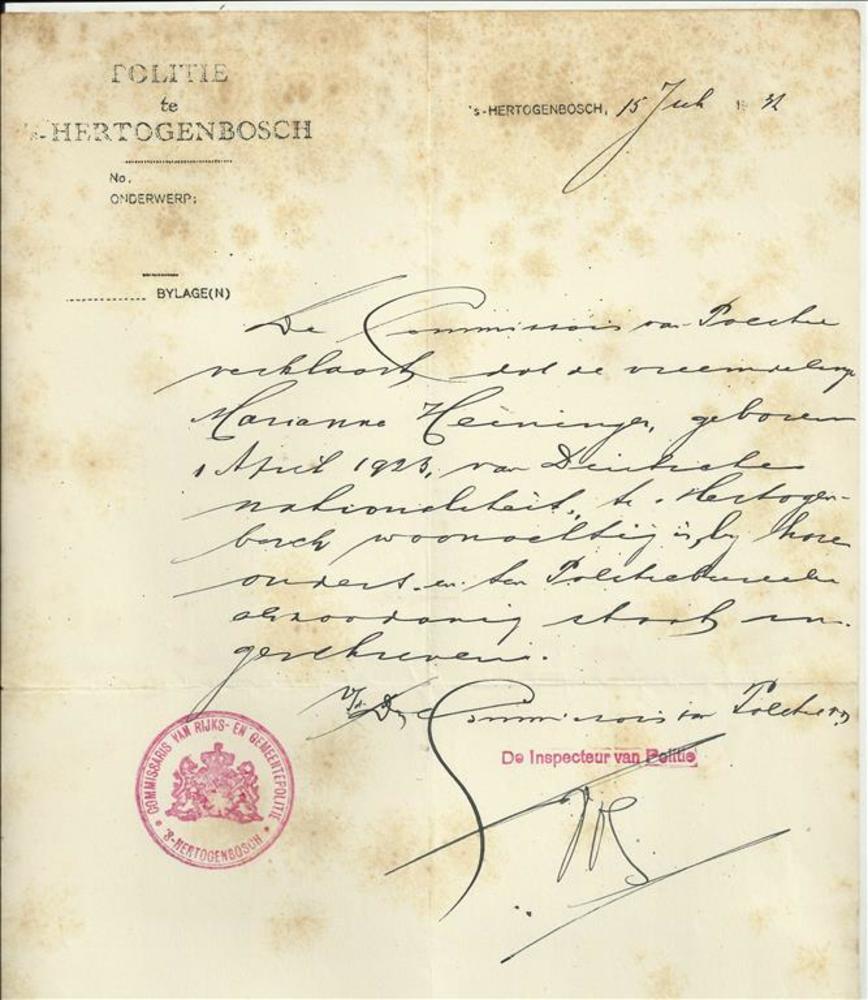 POLITIE
te
's-HERTOGENBOSCH
's-HERTOGENBOSCH, 15 Juli 19
No.
ONDERWERP:
BYLAGE(N)
De Commissaris van Politie
verklaart dat de vreemdelinge
Marianne Heininger, geboren
1 April 1923, van Duitsche
nationaliteit, te 's Hertogen-
bosch woonachtig is, by hare
ouders en ten Politiebureele
als zoodanig staat in-
geschreven.
De Commissaris van Politie
De Inspecteur van Politie
COMMISSARIS VAN RIJKS- EN GEMEENTEPOLITIE
'S-HERTOGENBOSCH